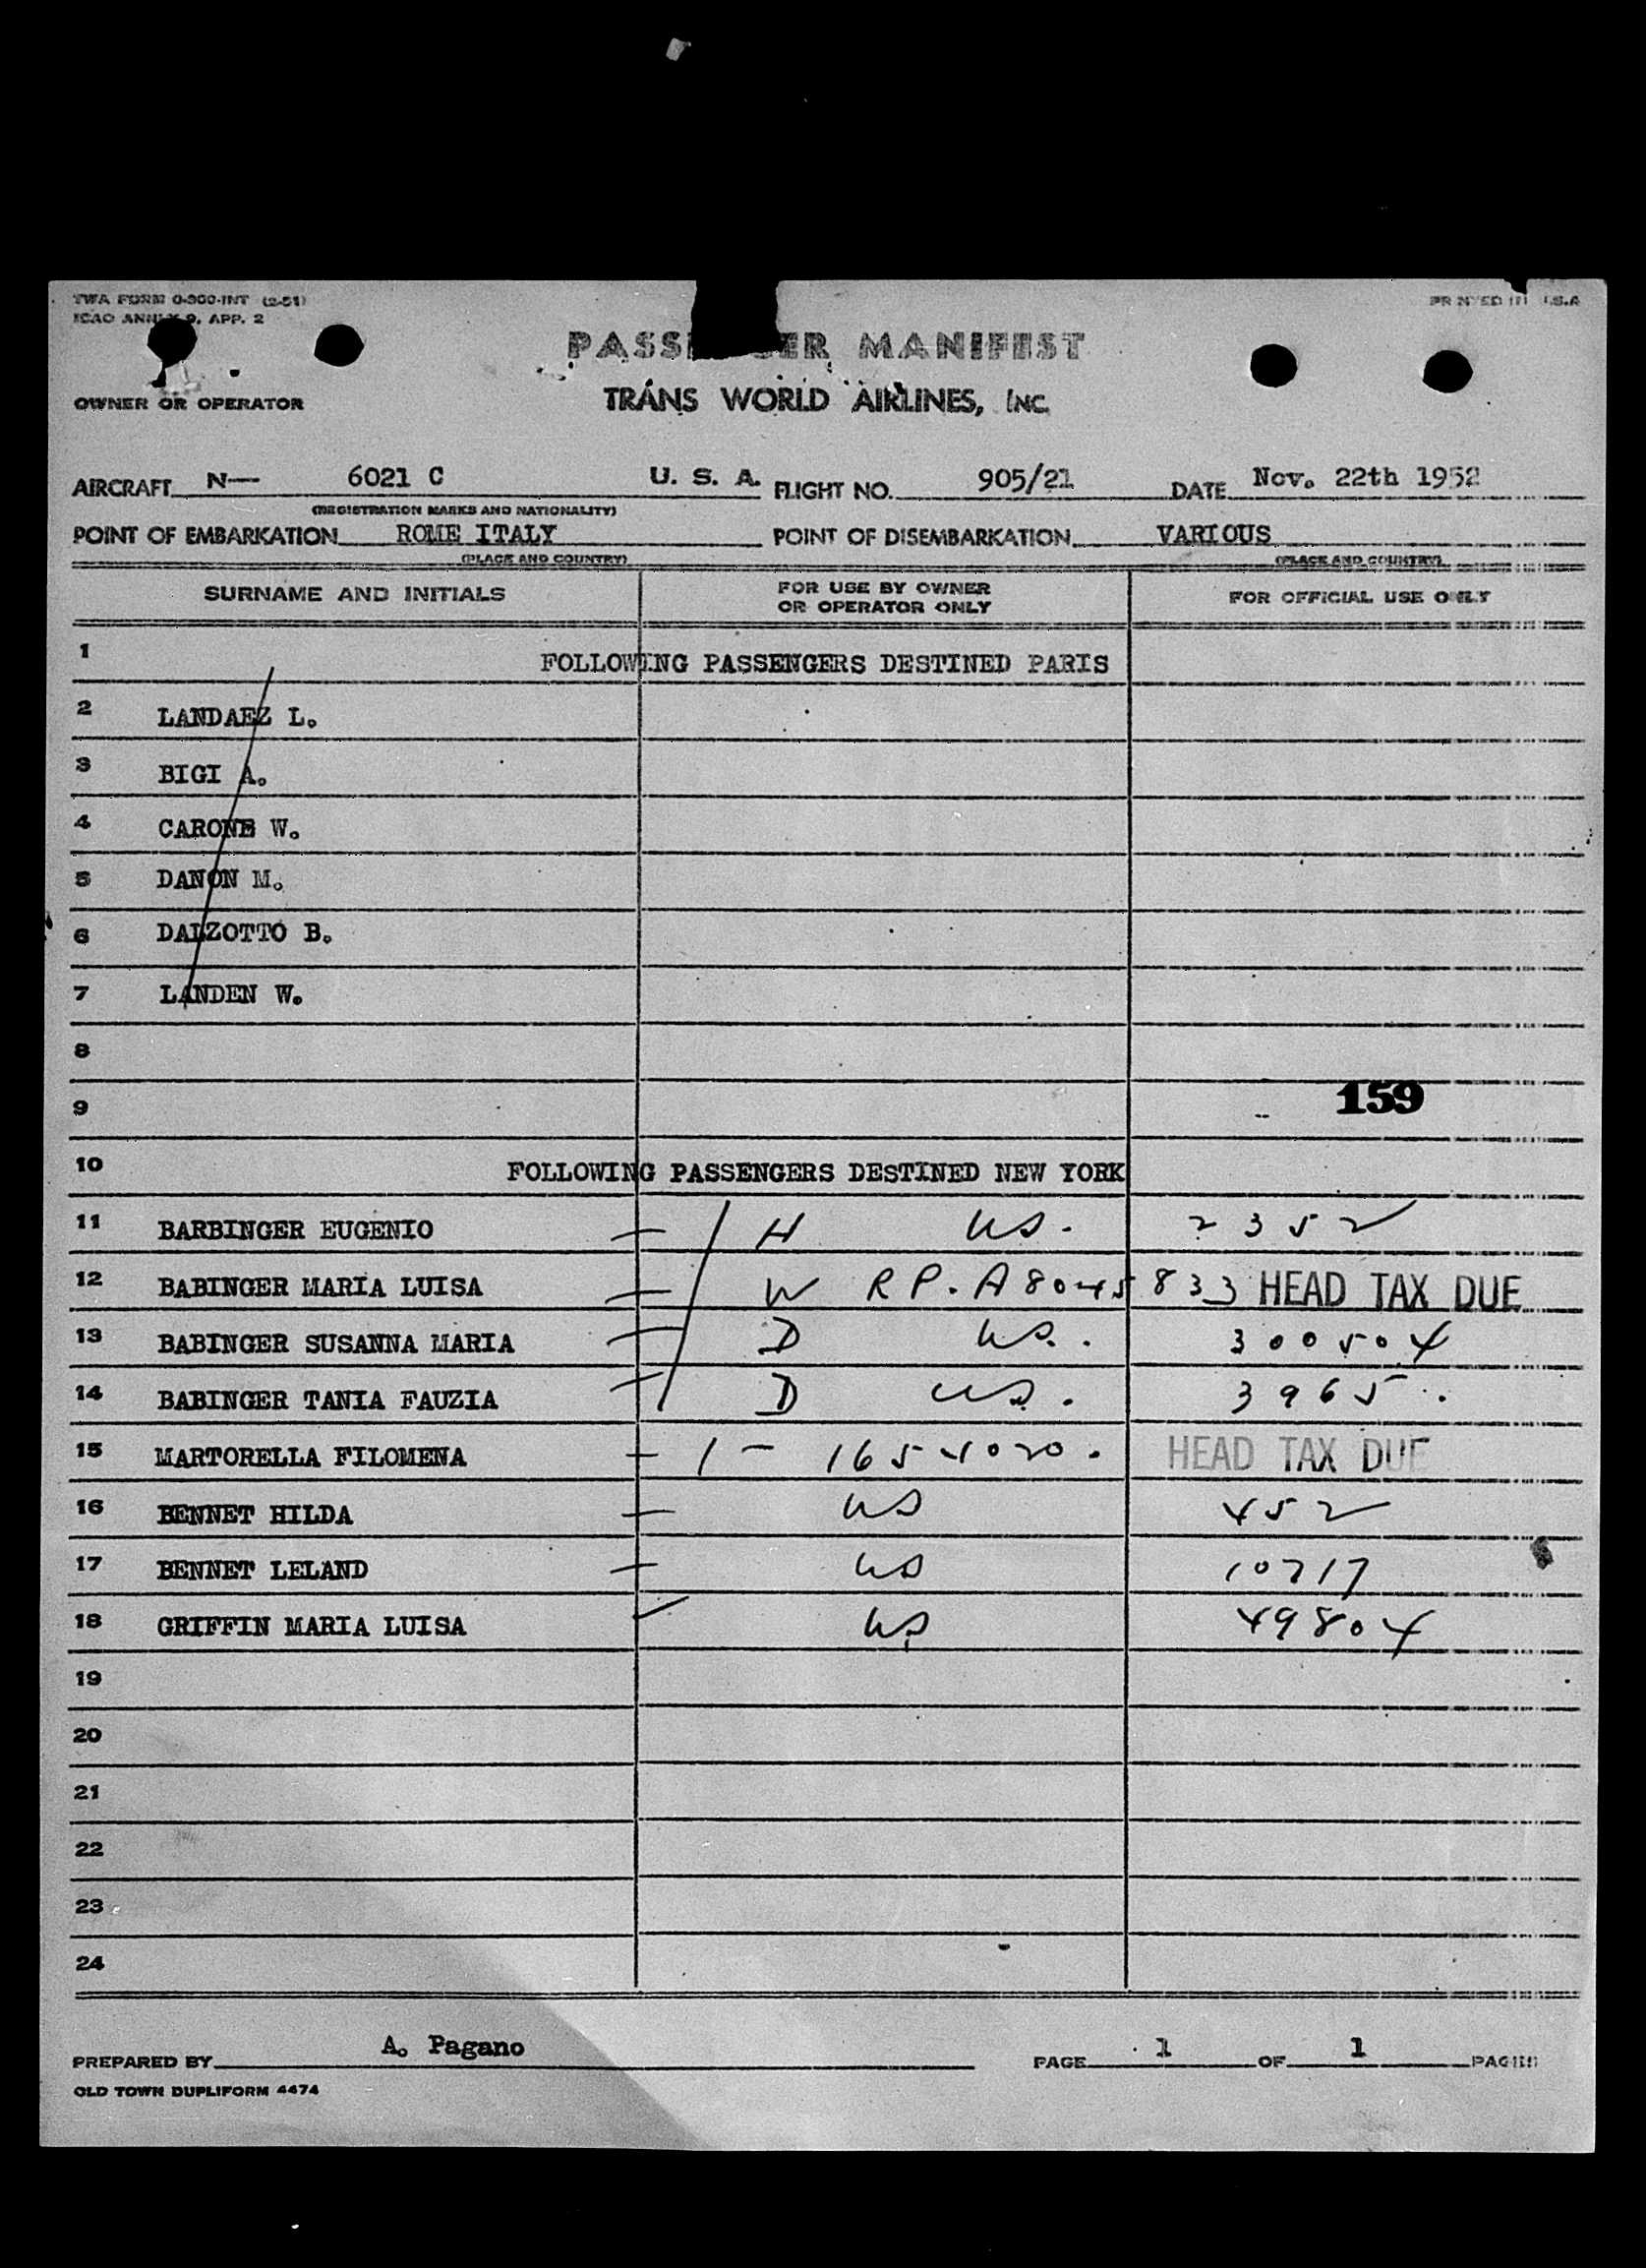 TWA FORM O-300-INT (2-51)
PRINTED IN U.S.A
ICAO ANNEX 9, APP. 2
PASSENGER MANIFEST
OWNER OR OPERATOR TRANS WORLD AIRLINES, INC.
AIRCRAFT N— 6021 C U. S. A. FLIGHT NO. 905/21 DATE Nov. 22th 1952
(REGISTRATION MARKS AND NATIONALITY)
POINT OF EMBARKATION ROME ITALY POINT OF DISEMBARKATION VARIOUS
(PLACE AND COUNTRY) (PLACE AND COUNTRY)
SURNAME AND INITIALS FOR USE BY OWNER OR OPERATOR ONLY FOR OFFICIAL USE ONLY
1 FOLLOWING PASSENGERS DESTINED PARIS
2 LANDAEZ L.
3 BIGI A.
4 CARONE W.
5 DANON M.
6 DALZOTTO B.
7 LANDEN W.
8
9 159
10 FOLLOWING PASSENGERS DESTINED NEW YORK
11 BARBINGER EUGENIO — H US. 2352
12 BABINGER MARIA LUISA — W RP. A8045833 HEAD TAX DUE
13 BABINGER SUSANNA MARIA — D US. 300504
14 BABINGER TANIA FAUZIA — D US. 3965
15 MARTORELLA FILOMENA — 1 — HEAD TAX DUE
16 BENNET HILDA — US 452
17 BENNET LELAND — US 10717
18 GRIFFIN MARIA LUISA US 49804
19
20
21
22
23
24
PREPARED BY A. Pagano PAGE 1 OF 1 PAGES
OLD TOWN DUPLIFORM 4474